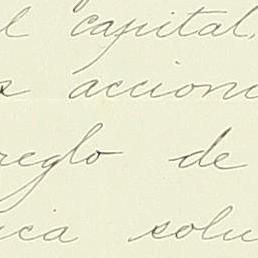 l capital,
s accion
reglo de
ica solu